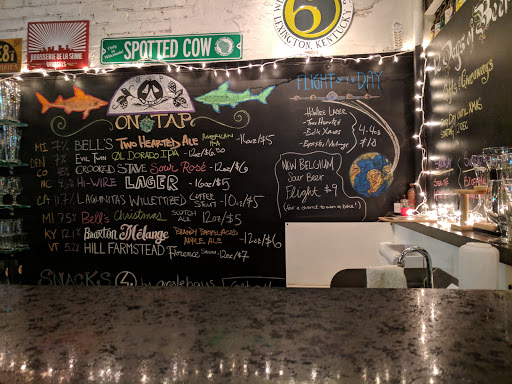 BRASSERIE DE LA SENNE
BRUSSELS
Only in Wisconsin
SPOTTED COW
5
LEXINGTON, KENTUCKY
ON TAP
MI 7% BELL'S TWO HEARTED ALE AMERICAN IPA - 16oz/$5
DEN 7% EVIL TWIN EL DORADO IPA - 12oz/$6.50
CO CROOKED STAVE SOUR ROSÉ - 12oz/$6
NC HI-WIRE LAGER - 16oz/$5
CA LAGUNITAS WILLETTIZED COFFEE STOUT - 10oz/$5
MI 7.5% Bell's Christmas SCOTCH ALE - 12oz/$5
KY 12.1% Braxton Mélange BRANDY BARREL AGED APPLE ALE - 12oz/$6
VT 5.2% HILL FARMSTEAD Florence - 12oz/$7
SNACKS
FLIGHT of the DAY
HiWire LAGER
- Two Hearted
- Bells Xmas
4-4oz
$10
NEW BELGIUM
SOUR Beer
Flight $9
(for a chance to win a bike!)
Days of Beer
Giveaways